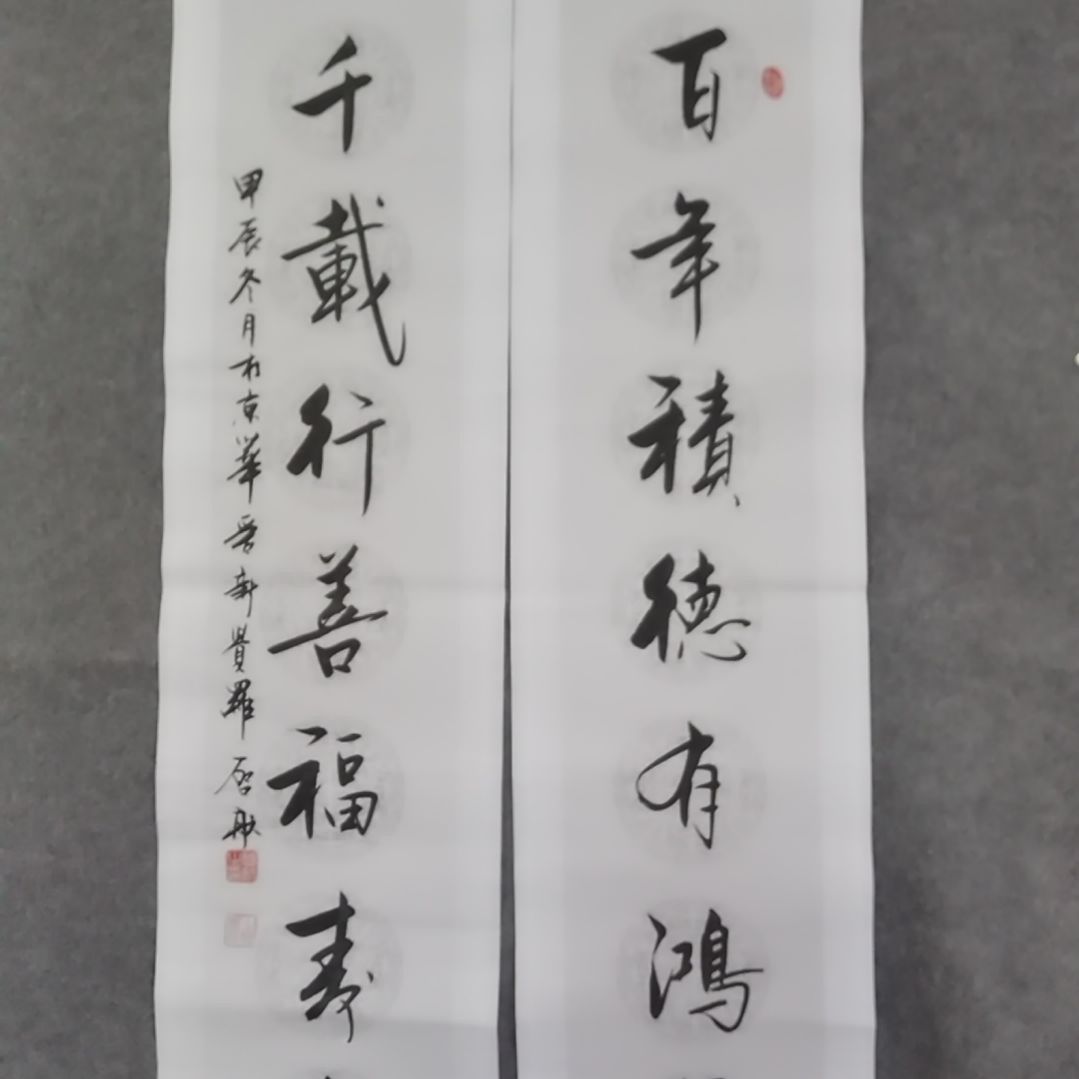 百年積德有鴻
千載行善福壽
甲辰冬月於京華愛新覺羅啟舟